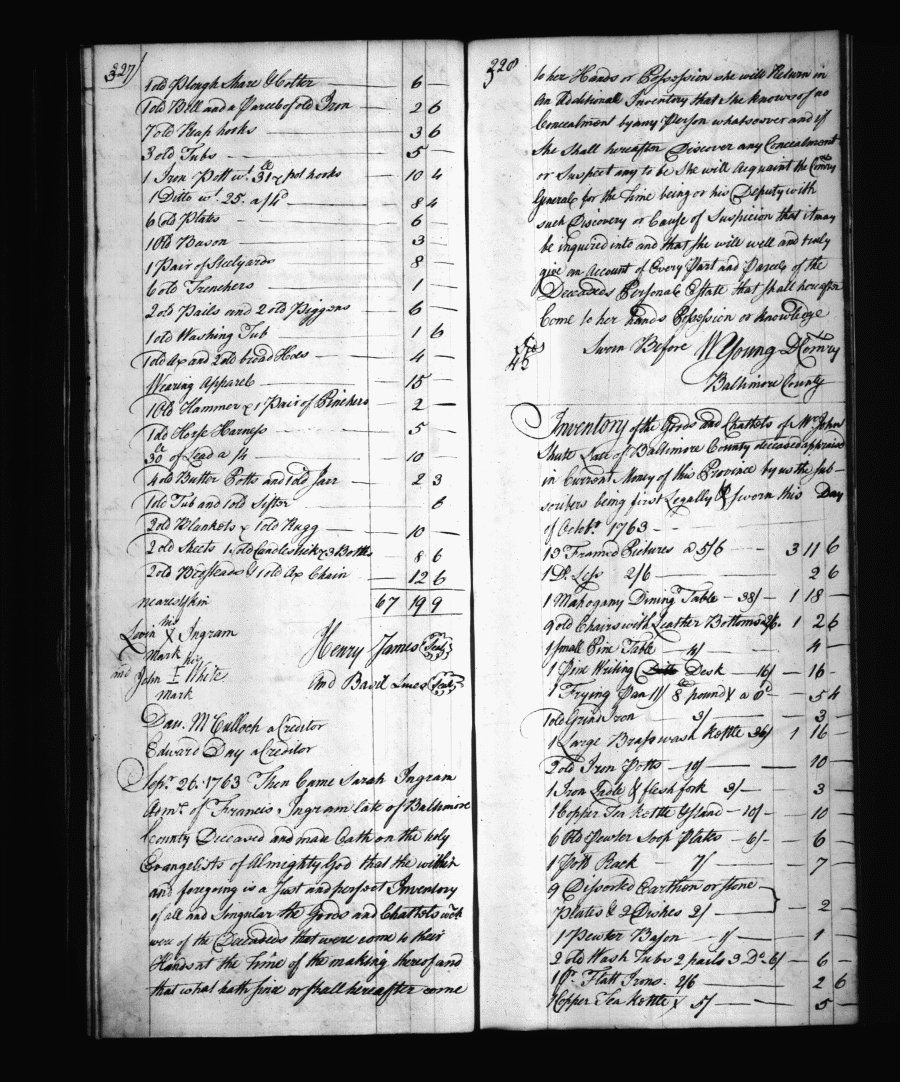 327
1 old Plough Share & Colter — 6 —
1 old Bell and a Parcel of old Iron — 2 6
7 old Reap hooks — 3 6
3 old Tubs — 5 —
1 Iron Pott wt. 31 & pot hooks — 10 4
1 Ditto wt. 25. a /4d 8 4
6 Old Plates — 6 —
1 Old Bason — 3 —
1 Pair of Steelyards — 8 —
6 old Trenchers — 1 —
2 old Pails and 2 old Piggons 6 —
1 old Washing Tub 1 6
1 old Ax and 2 old broad Hoes — 4 —
Wearing Apparel — 15 —
1 Old Hammer & 1 Pair of Pinchers — 2 —
1 old Horse Harness — 5 —
30 of Lead a /4 — 10 —
4 old Butter Potts and 1 old Jarr — 2 3
1 old Tub and 1 old Sifter 6
2 old Blankets & 1 old Rugg — 10 —
2 old Sheets 1 old Candlestick & 3 Bottles 8 6
2 old Bedsteads & 1 old Ax Chain — 12 6
nearest kin 67 19 9
his
Levin X Ingram
Mark Henry James Seal
his
and John I White And Basil Lucas Seal
Mark
Dav. McCulloch a Creditor
Edward Day a Creditor
Sepr. 26. 1763 Then Came Sarah Ingram
Admx. of Francis Ingram late of Baltimore
County Deceased and made Oath on the holy
Evangelists of Almighty God that the within
and foregoing is a Just and perfect Inventory
of all and Singular the Goods and Chattels wch
were of the Deceaseds that were come to their
Hands at the Time of the making hereof and
that what hath since or shall hereafter come
328
to her Hands or Possession she will Return in
an Additional Inventory that she knows of no
Concealment by any Person whatsoever and if
she shall hereafter Discover any Concealment
or Suspect any to be She will Acquaint the Comry
General for the time being or his Deputy with
such Discovery or Cause of Suspicion that it may
be inquired into and that she will well and truly
give an Account of Every Part and Parcel of the
Deceaseds Personal Estate that shall hereafter
Come to her hands Possession or knowledge
Sworn Before W Young D Comry
45
Baltimore County
Inventory of the Goods and Chattels of Mr. John
Shute Late of Baltimore County deceased appraised
in Current Money of this Province by us the Sub-
scribers being first Legally & sworn this Day
of Octobr. 1763 —
13 Framed Pictures @ 5/6 — 3 11 6
1 Do. Less 2/6 — 2 6
1 Mahogany Dining Table — 38/ — 1 18 —
9 old Chairs with Leather Bottoms 2/6. 1 2 6
1 small Pine Table — 4/ — 4 —
1 Pine Writing Desk — 16/ — 16 —
1 Frying Pan 11/ 8 pound a 8d — 5 4
1 old Grid Iron 3/ — 3 —
1 Large Brass wash Kettle 36/ 1 16 —
2 old Iron Potts — 10/ — 10 —
1 Iron Ladle & flesh fork 3/ — 3
1 Copper Tea Kettle & Stand — 10/ — 10
6 Old Pewter Soop Plates — 6/ — 6
1 Pott Rack — 7/ — 7
9 Dissorted Earthen or stone
Plates & 2 Dishes 2/ — 2 —
1 Pewter Bason — 1/ — 1
2 old Wash Tubs 2 pails 3 Do. 6/ — 6 —
1 pr. Flatt Irons. 2/6 — 2 6
1 Copper Tea Kettle 5/ — 5 —